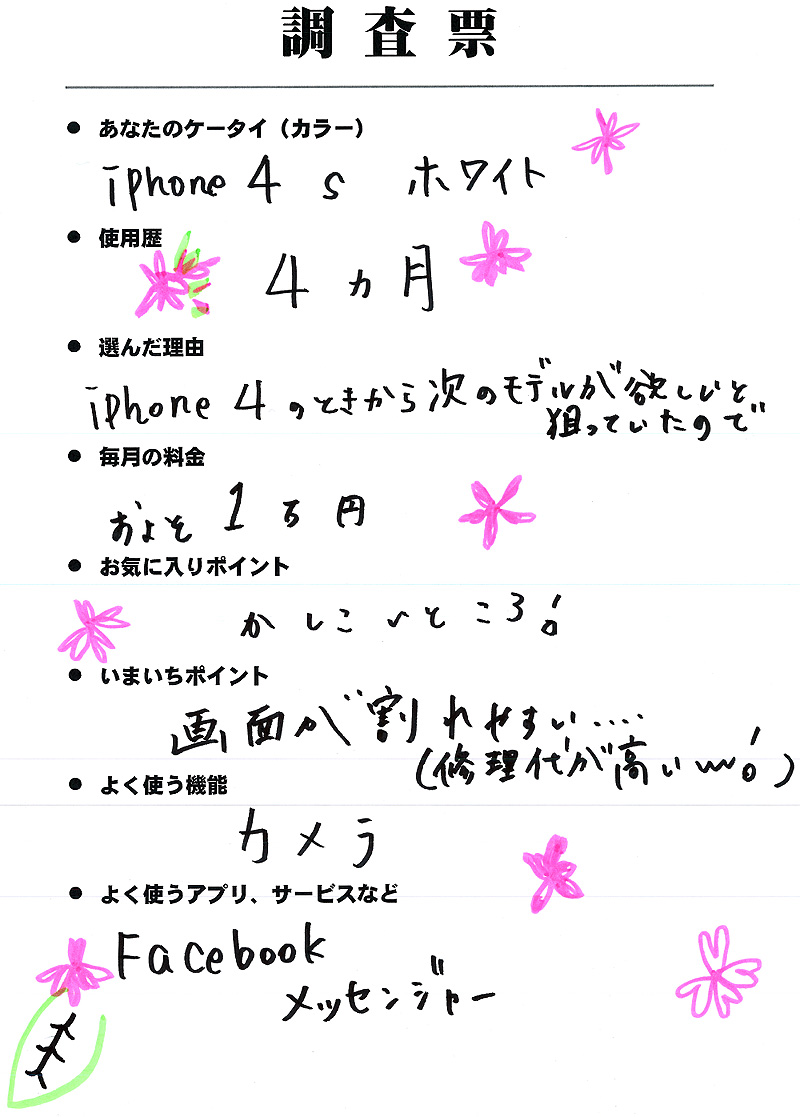 調査票
● あなたのケータイ（カラー）
iphone 4 s ホワイト
● 使用歴
4 ヵ月
● 選んだ理由
iphone 4 のときから次のモデルが欲しいと
狙っていたので
● 毎月の料金
およそ 1 万円
● お気に入りポイント
かしこいところ!
● いまいちポイント
画面が割れやすい....
(修理代が高い〰!)
● よく使う機能
カメラ
● よく使うアプリ、サービスなど
Facebook
メッセンジャー